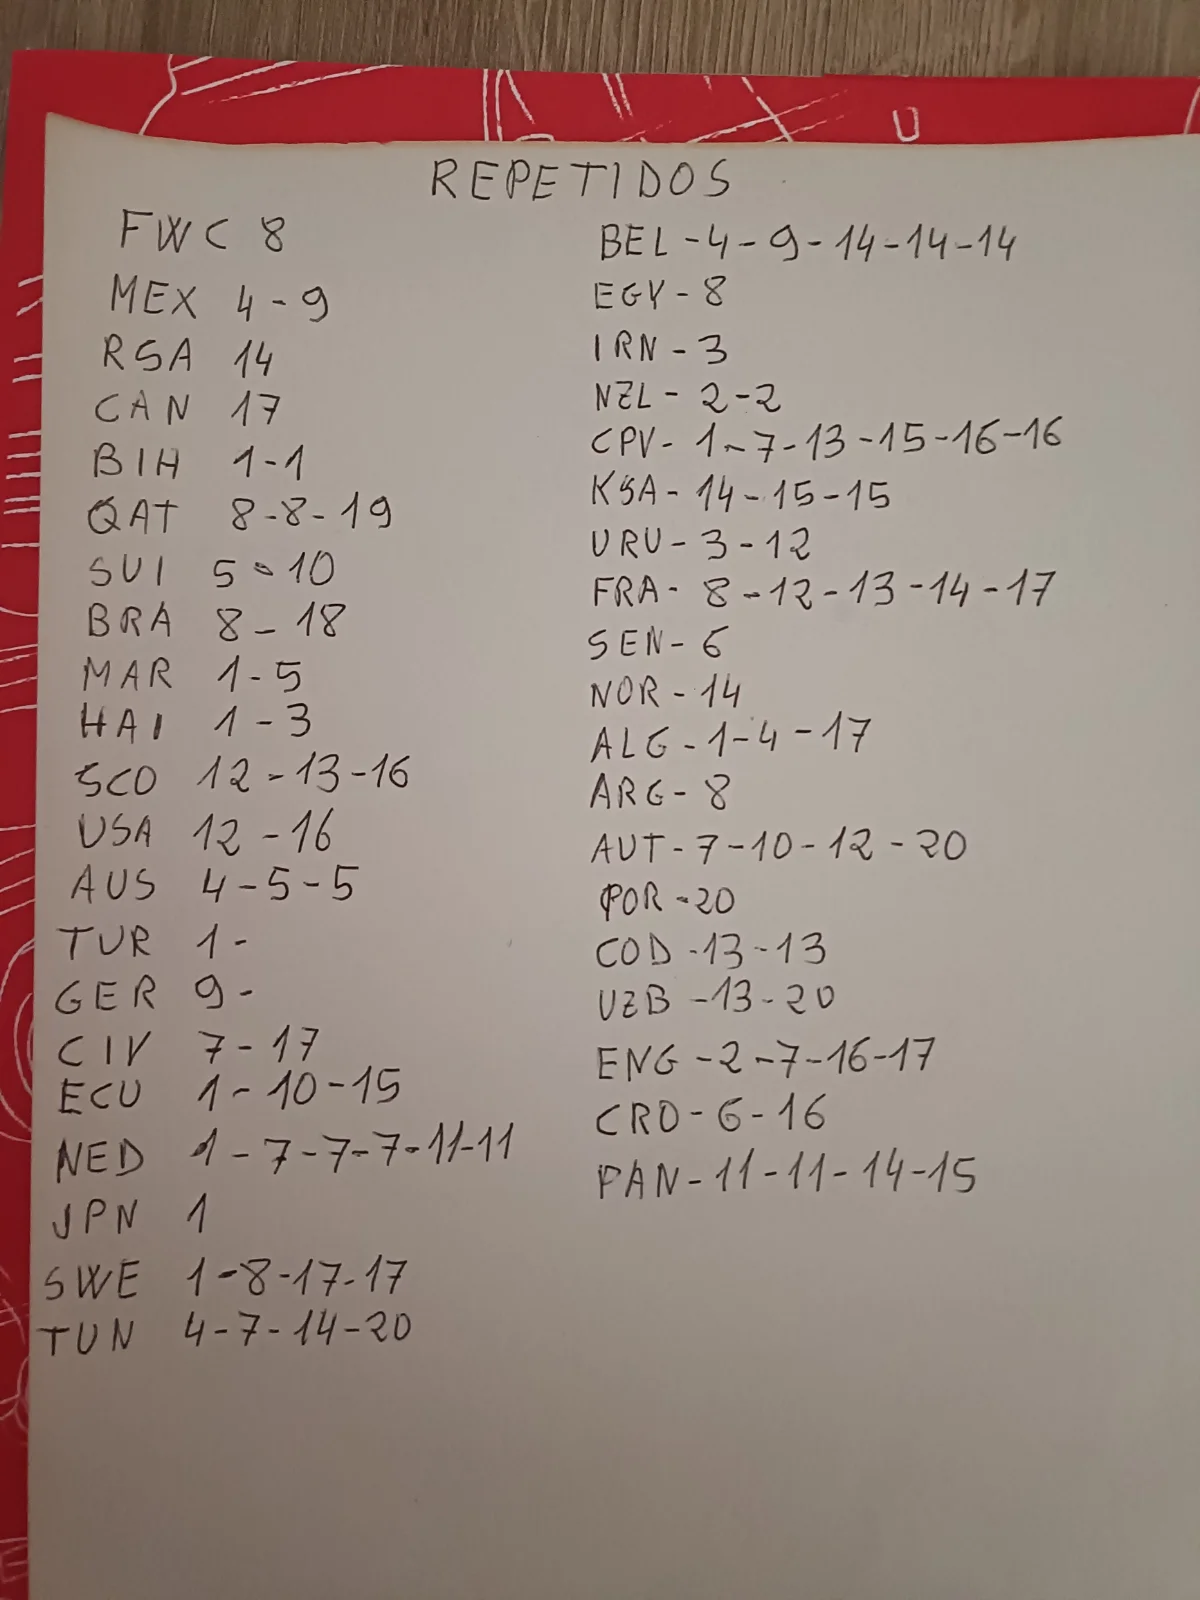 REPETIDOS
FWC 8
MEX 4-9
RSA 14
CAN 17
BIH 1-1
QAT 8-8-19
SUI 5-10
BRA 8-18
MAR 1-5
HAI 1-3
SCO 12-13-16
USA 12-16
AUS 4-5-5
TUR 1-
GER 9-
CIV 7-17
ECU 1-10-15
NED 1-7-7-7-11-11
JPN 1
SWE 1-8-17-17
TUN 4-7-14-20
BEL-4-9-14-14-14
EGY-8
IRN-3
NZL-2-2
CPV-1-7-13-15-16-16
KSA-14-15-15
URU-3-12
FRA-8-12-13-14-17
SEN-6
NOR-14
ALG-1-4-17
ARG-8
AUT-7-10-12-20
POR-20
COD-13-13
UZB-13-20
ENG-2-7-16-17
CRO-6-16
PAN-11-11-14-15